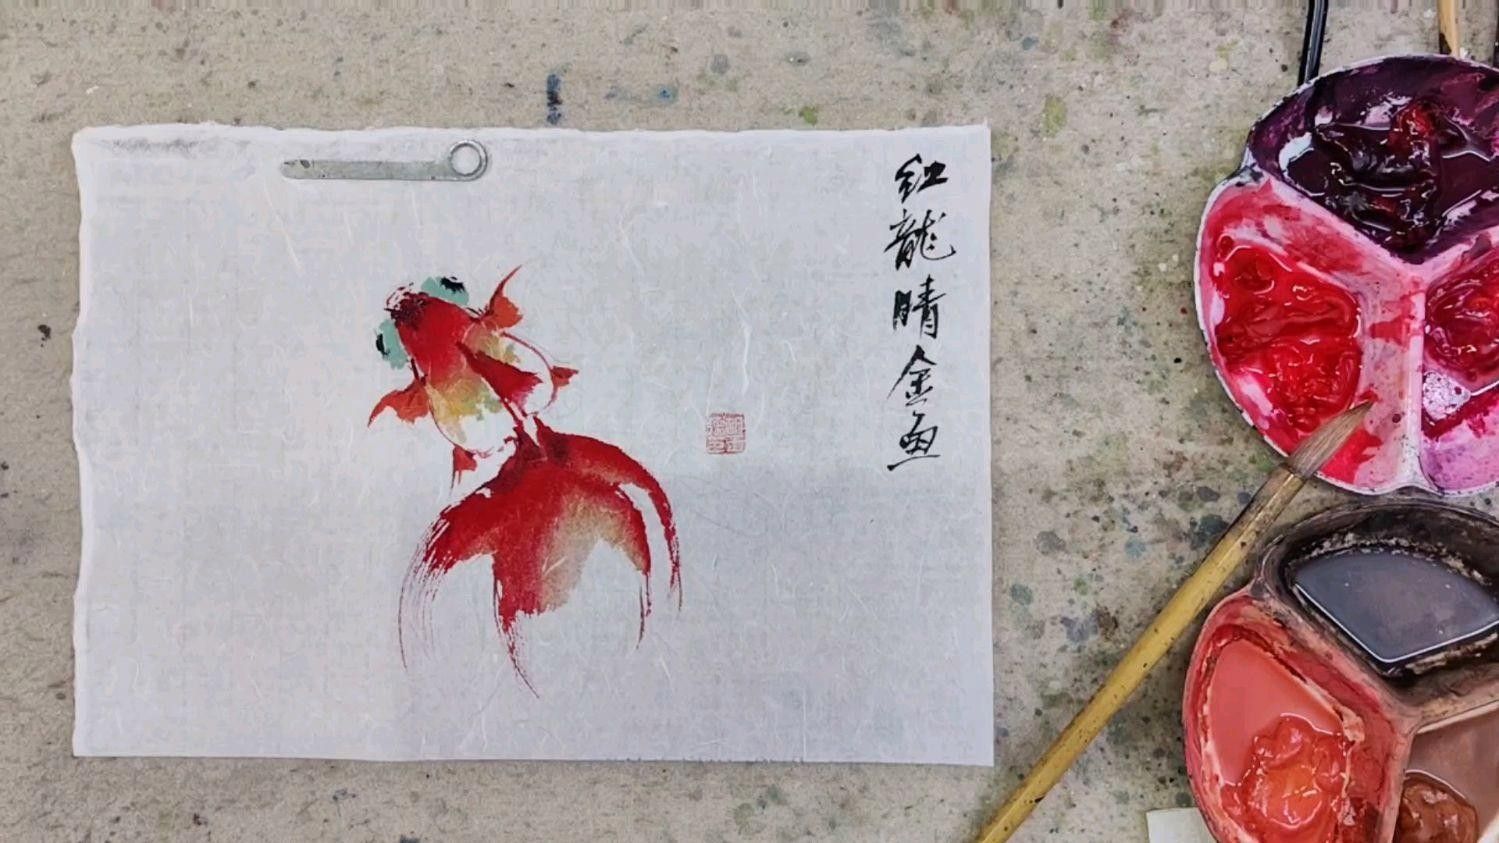 红龍睛金鱼